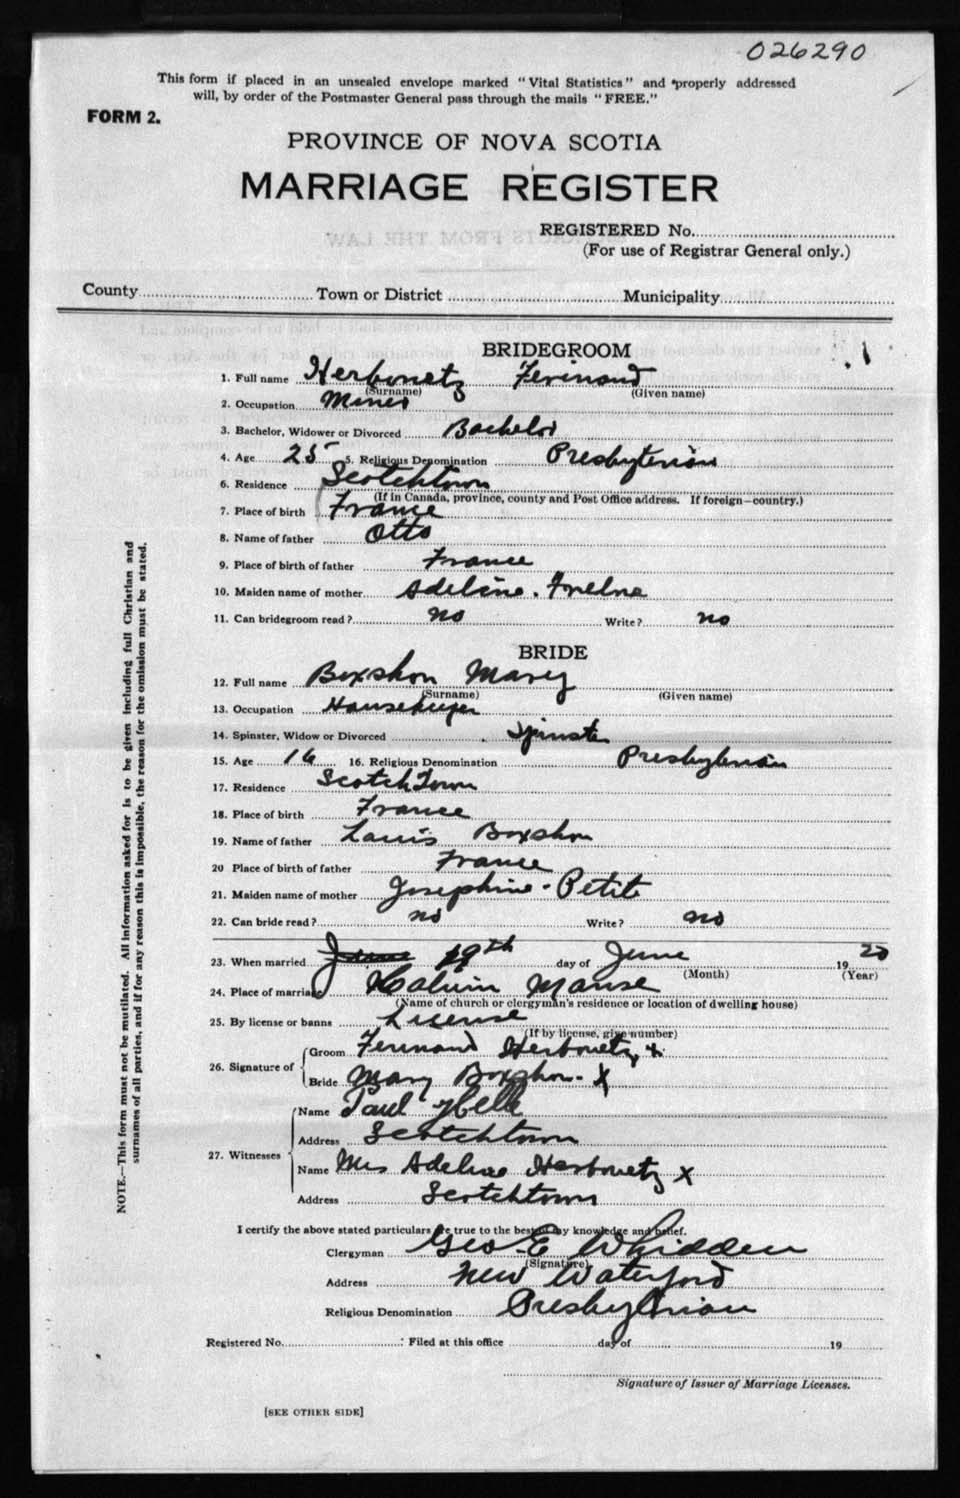 026290
This form if placed in an unsealed envelope marked "Vital Statistics" and properly addressed
will, by order of the Postmaster General pass through the mails "FREE."
FORM 2.
PROVINCE OF NOVA SCOTIA
MARRIAGE REGISTER
REGISTERED No.
(For use of Registrar General only.)
County Town or District Municipality
BRIDEGROOM
1. Full name Herbowetz Ferinand
(Surname) (Given name)
2. Occupation Miner
3. Bachelor, Widower or Divorced Bachelor
4. Age 25 5. Religious Denomination Presbyterian
6. Residence Scotchtown
(If in Canada, province, county and Post Office address. If foreign—country.)
7. Place of birth France
8. Name of father Otto
9. Place of birth of father France
10. Maiden name of mother Adeline.
11. Can bridegroom read? no Write? no
BRIDE
12. Full name Boxshon Mary
(Surname) (Given name)
13. Occupation Housekeeper
14. Spinster, Widow or Divorced Spinster
15. Age 16 16. Religious Denomination Presbyterian
17. Residence Scotch Town
18. Place of birth France
19. Name of father Louis Boxshon
20 Place of birth of father France
21. Maiden name of mother Josephine - Petit
22. Can bride read? no Write? no
23. When married 19th day of June 1920
(Month) (Year)
24. Place of marriage Kalvin Manse
(Name of church or clergyman's residence or location of dwelling house)
25. By license or banns License
(If by license, give number)
26. Signature of
Groom Ferinand Herbowetz x
Bride Mary Boxshon. X
27. Witnesses
Name Paul
Address Scotchtown
Name Mrs Adeline Herbowetz x
Address Scotchtown
I certify the above stated particulars are true to the best of my knowledge and belief.
Clergyman Geo E Whidden
(Signature)
Address New Waterford
Religious Denomination Presbyterian
Registered No. : Filed at this office day of 19
Signature of Issuer of Marriage Licenses.
[SEE OTHER SIDE]
NOTE.—This form must not be mutilated. All information asked for is to be given including full Christian and
surnames of all parties, and if for any reason this is impossible, the reason for the omission must be stated.